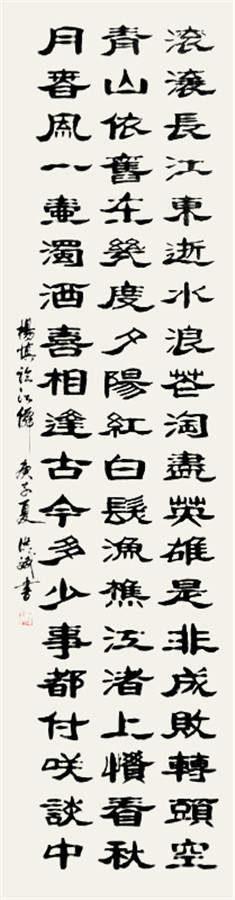 滾滾長江東逝水浪花淘盡英雄是非成敗轉頭空
青山依舊在幾度夕陽紅白髮漁樵江渚上慣看秋
月春風一壺濁酒喜相逢古今多少事都付咲談中
楊慎臨江僊 庚子夏 洪斌書